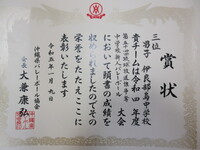 賞状
三位
男子 伊良部島中学校
貴チームは令和四年度
中学校新人バレーボール大会
において頭書の成績を
収められましたのでその
栄誉をたたえここに
表彰いたします
令和五年一月九日
沖縄県バレーボール協会
会長 大兼康弘